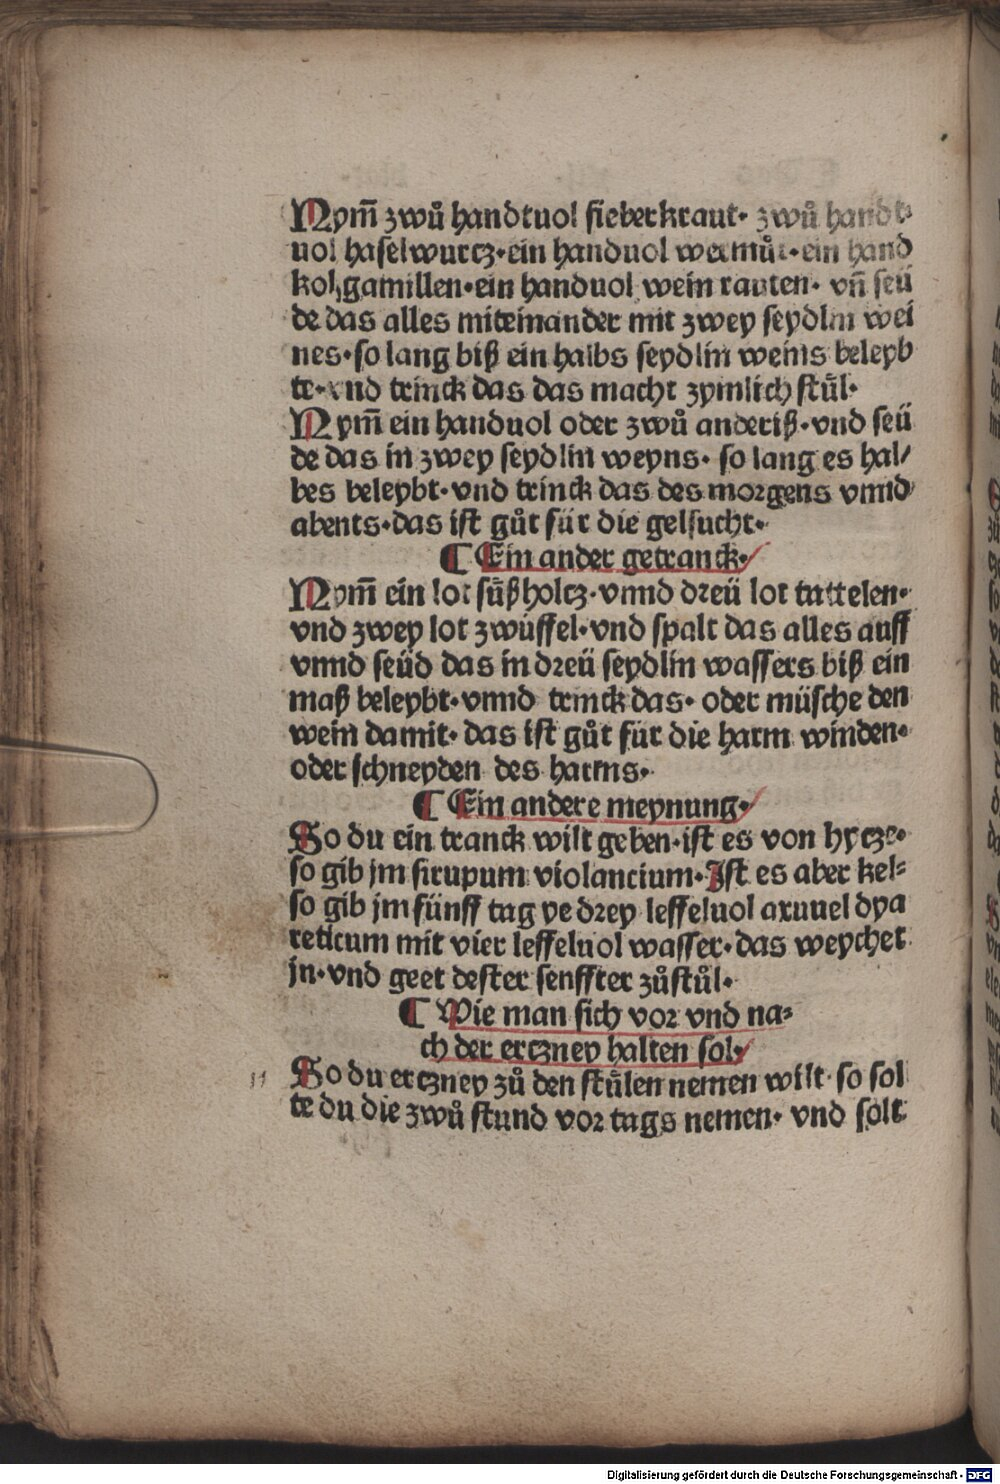 Nym̄ zwů handtuol fieberkraut· zwů handt⸗
uol haselwurcz·ein handuol wermůt·ein hand
kol gamillen·ein handuol wein rauten· vn̄ seü
de das alles miteinander mit zwey seydlin wei
nes·so lang biß ein halbs seydlin weins beleyb
te·vnd trinck das das macht zymlich stůl·
Nym̄ ein handuol oder zwů anderiß·vnd seü
de das in zwey seydlin weyns· so lang es hal/
bes beleybt·vnd trinck das des morgens vnnd
abents·das ist gůt für die gelsucht·
¶ Ein ander getranck·
Nym̄ ein lot süßholcz·vnnd dreü lot tattelen·
vnd zwey lot zwüffel·vnd spalt das alles auff
vnnd seüd das in dreü seydlin wassers biß ein
maß beleybt·vnnd trinck das· oder müsche den
wein damit· das ist gůt für die harm winden·
oder schneyden des harms·
¶ Ein andere meynung·
So du ein tranck wilt geben·ist es von hycze·
so gib jm sirupum violancium·Ist es aber kel⸗
so gib jm fünff tag ye drey leffeluol axuuel dya
reticum mit vier leffeluol wasser·das weychet
jn·vnd geet dester senffter zůstůl·
¶ Wie man sich vor vnd na⸗
ch der erczney halten sol·
So du erczney zů den stůlen nemen wilt·so sol
te du die zwů stund vor tags nemen· vnd solt
Digitalisierung gefördert durch die Deutsche Forschungsgemeinschaft - DFG